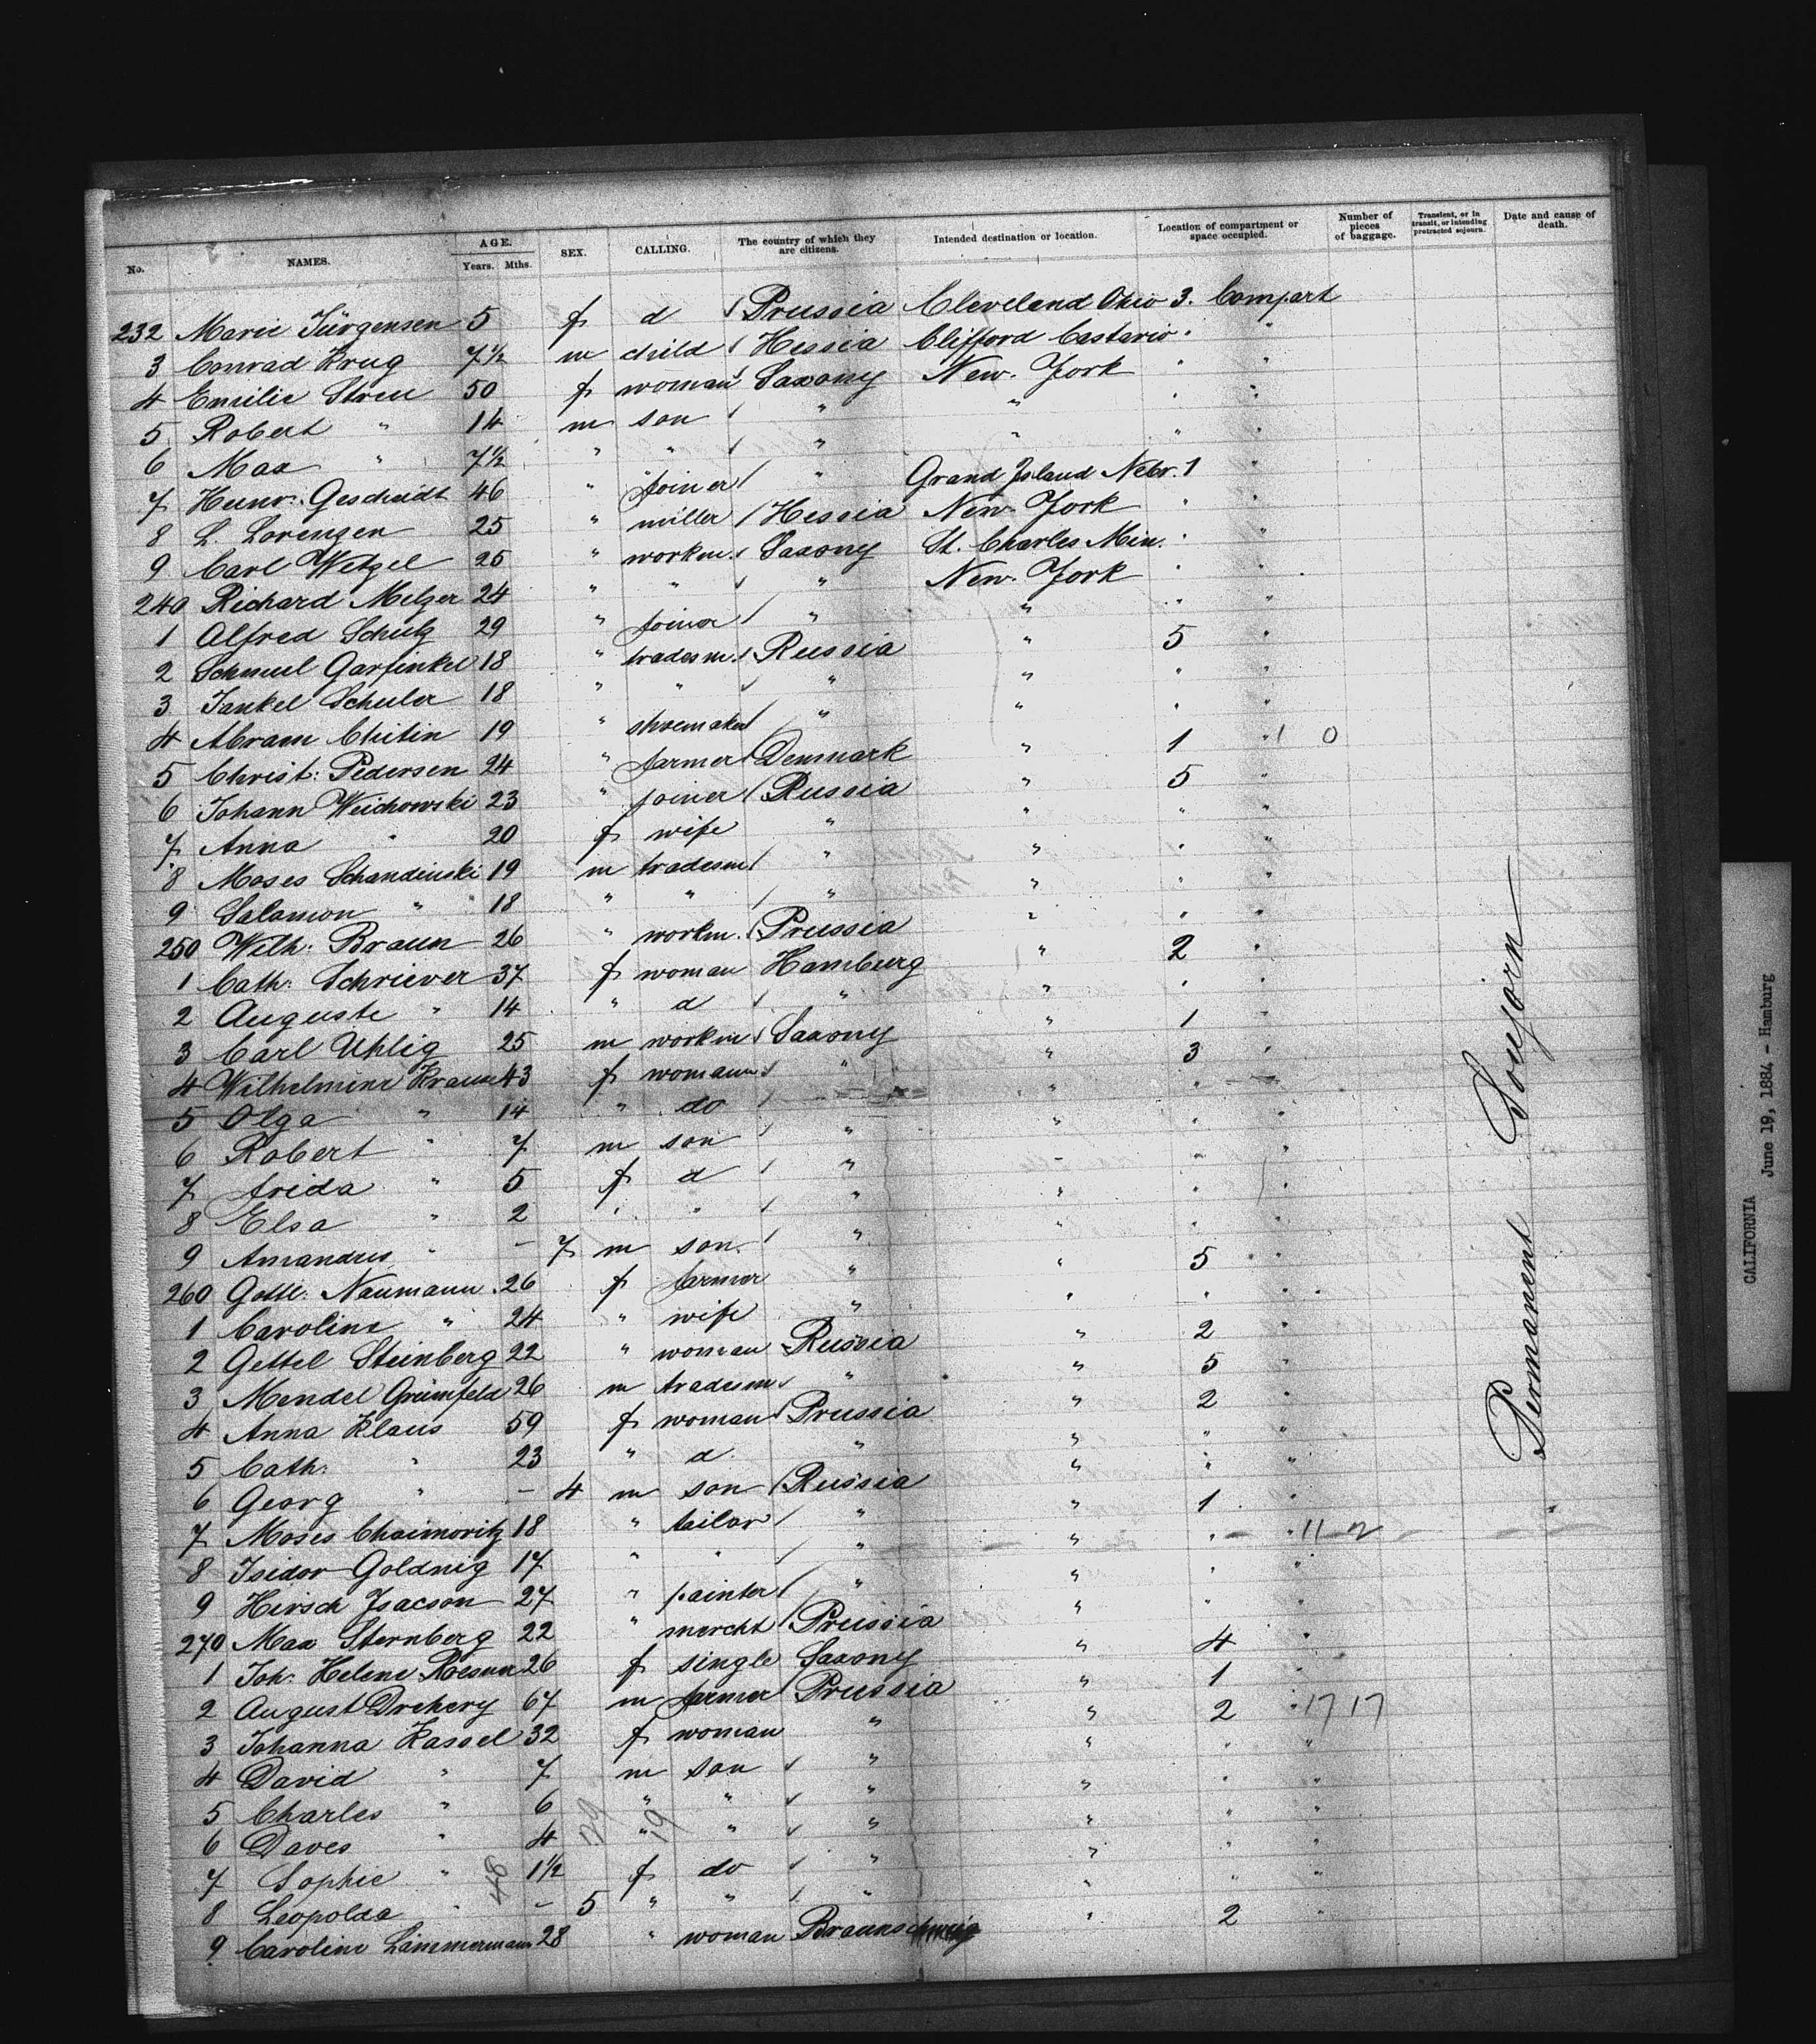 No. NAMES. AGE. Years. Mths. SEX. CALLING. The country of which they are citizens. Intended destination or location. Location of compartment or space occupied. Number of pieces of baggage. Transient, or in transit, or intending protracted sojourn. Date and cause of death.
232 Marie Jürgensen 5 f d Prussia Cleveland Ohio 3. Compart
3 Conrad Krug 7½ m child Hessia Clifford " "
4 Emilie Streu 50 f woman Saxony New-York " "
5 Robert " 14 m son " " " "
6 Max " 7½ " " " " " "
7 Heinr. Gescheidt 46 " joiner " Grand Island Nebr. 1 "
8 L. Lorenzen 25 " miller Hessia New-York " "
9 Carl Wetzel 25 " workm. Saxony St. Charles Min. " "
240 Richard Melzer 24 " " " New-York " "
1 Alfred Schulz 29 " joiner " " " "
2 Schmul Garfinkel 18 " tradesm. Russia " 5 "
3 Jankel Schuler 18 " " " " " "
4 Abram Chitin 19 " shoemaker " " " "
5 Christ: Pedersen 24 " farmer Denmark " 1 " 1 0
6 Johann Weichowski 23 " joiner Russia " 5 "
7 Anna " 20 f wife " " " "
8 Moses Schandinski 19 m tradesm " " " "
9 Salamon " 18 " " " " " "
250 Wilh: Braun 26 " workm. Prussia " " "
1 Cath: Schriever 37 f woman Hamburg " 2 "
2 Auguste " 14 " d " " " "
3 Carl Uhlig 25 m workm Saxony " 1 "
4 Wilhelmine Kraum 43 f womann " " 3 "
5 Olga " 14 " do " " " "
6 Robert " 7 m son " " " "
7 Frida " 5 f d " " " "
8 Elsa " 2 " " " " " "
9 Amandus " - 7 m son. " " " "
260 Gottl: Naumann. 26 f farmer " " 5 "
1 Caroline " 24 " wife " " " "
2 Gettel Steinberg 22 " woman Russia " 2 "
3 Mendel Grünfeld 26 m tradesm " " 5 "
4 Anna Klaus 59 f woman Prussia " 2 "
5 Cath: " 23 " d. " " " "
6 Georg " - 4 m son Russia " " "
7 Moses Chaimoritz 18 " tailor " " 1 "
8 Isidor Goldnig 17 " " " " " " 11 2
9 Hirsch Isacson 27 " painter " " " "
270 Max Sternberg 22 " mercht Prussia " " "
1 Joh: Helene 26 f single Saxony " 4 "
2 August Drehery 67 m farmer Prussia " 1 "
3 Johanna Kassel 32 f woman " " 2 " 17 17
4 David " 7 m son " " " "
5 Charles " 6 " " " " " "
6 Daves " 4 " " " " " "
7 Sophie " 1½ f do " " " "
8 Leopolda " - 5 " " " " " "
9 Caroline Lämmermann 28 " woman Braunschweig " 2 "
48 29 19
Permanent Soujorn
CALIFORNIA June 19, 1884 - Hamburg